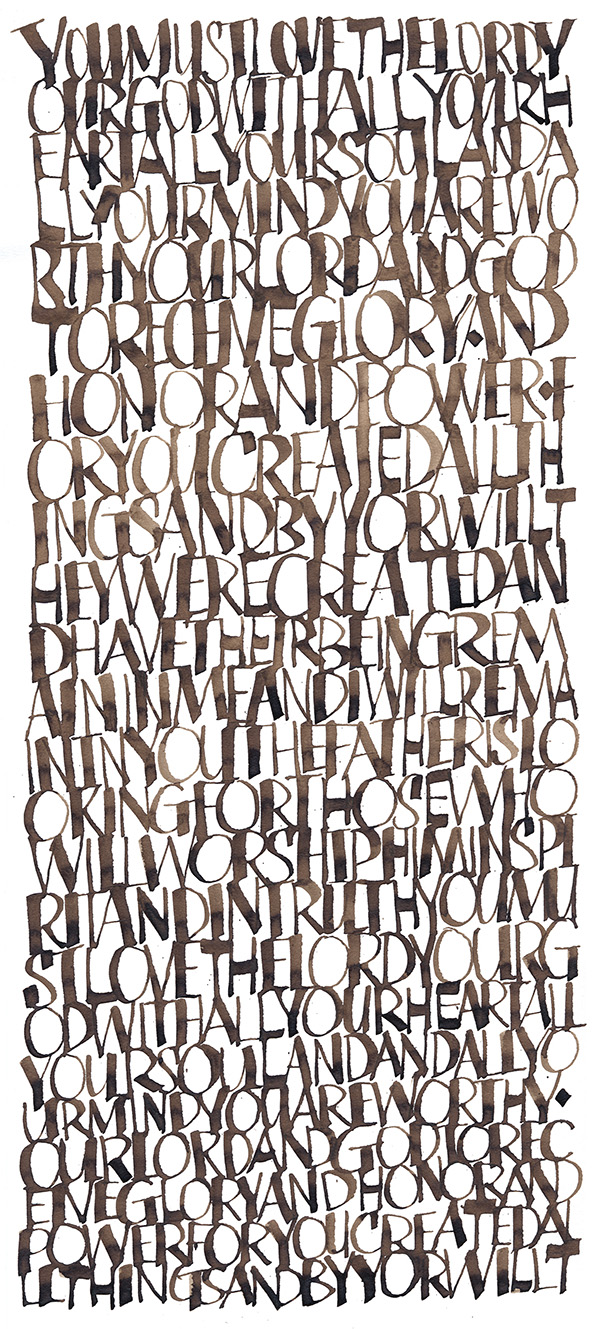 YOUMUSTLOVETHELORDY
OURGODWITHALLYOURH
EARTALLYOURSOULANDA
LLYOURMINDYOUAREWO
RTHYOURLORDANDGOD
TORECEIVEGLORY·AND
HONORANDPOWER·F
ORYOUCREATEDALLTH
INGSANDBYYORWILLT
HEYWERECREATEDAN
DHAVETHEIRBEINGREM
AININMEANDIWILLREMA
ININYOUTHEFATHERISLO
OKINGFORTHOSEWHO
WILLWORSHIPHIMINSPI
RITANDINTRUTHYOUMU
STLOVETHELORDYOURG
ODWITHALLYOURHEARTALL
YOURSOULANDANDALLYO
URMINDYOUAREWORTHY·
OURLORDANDGODTOREC
EIVEGLORYANDHONORAND
POWERFORYOUCREATEDAL
LETHINGSANDBYYORWILLT